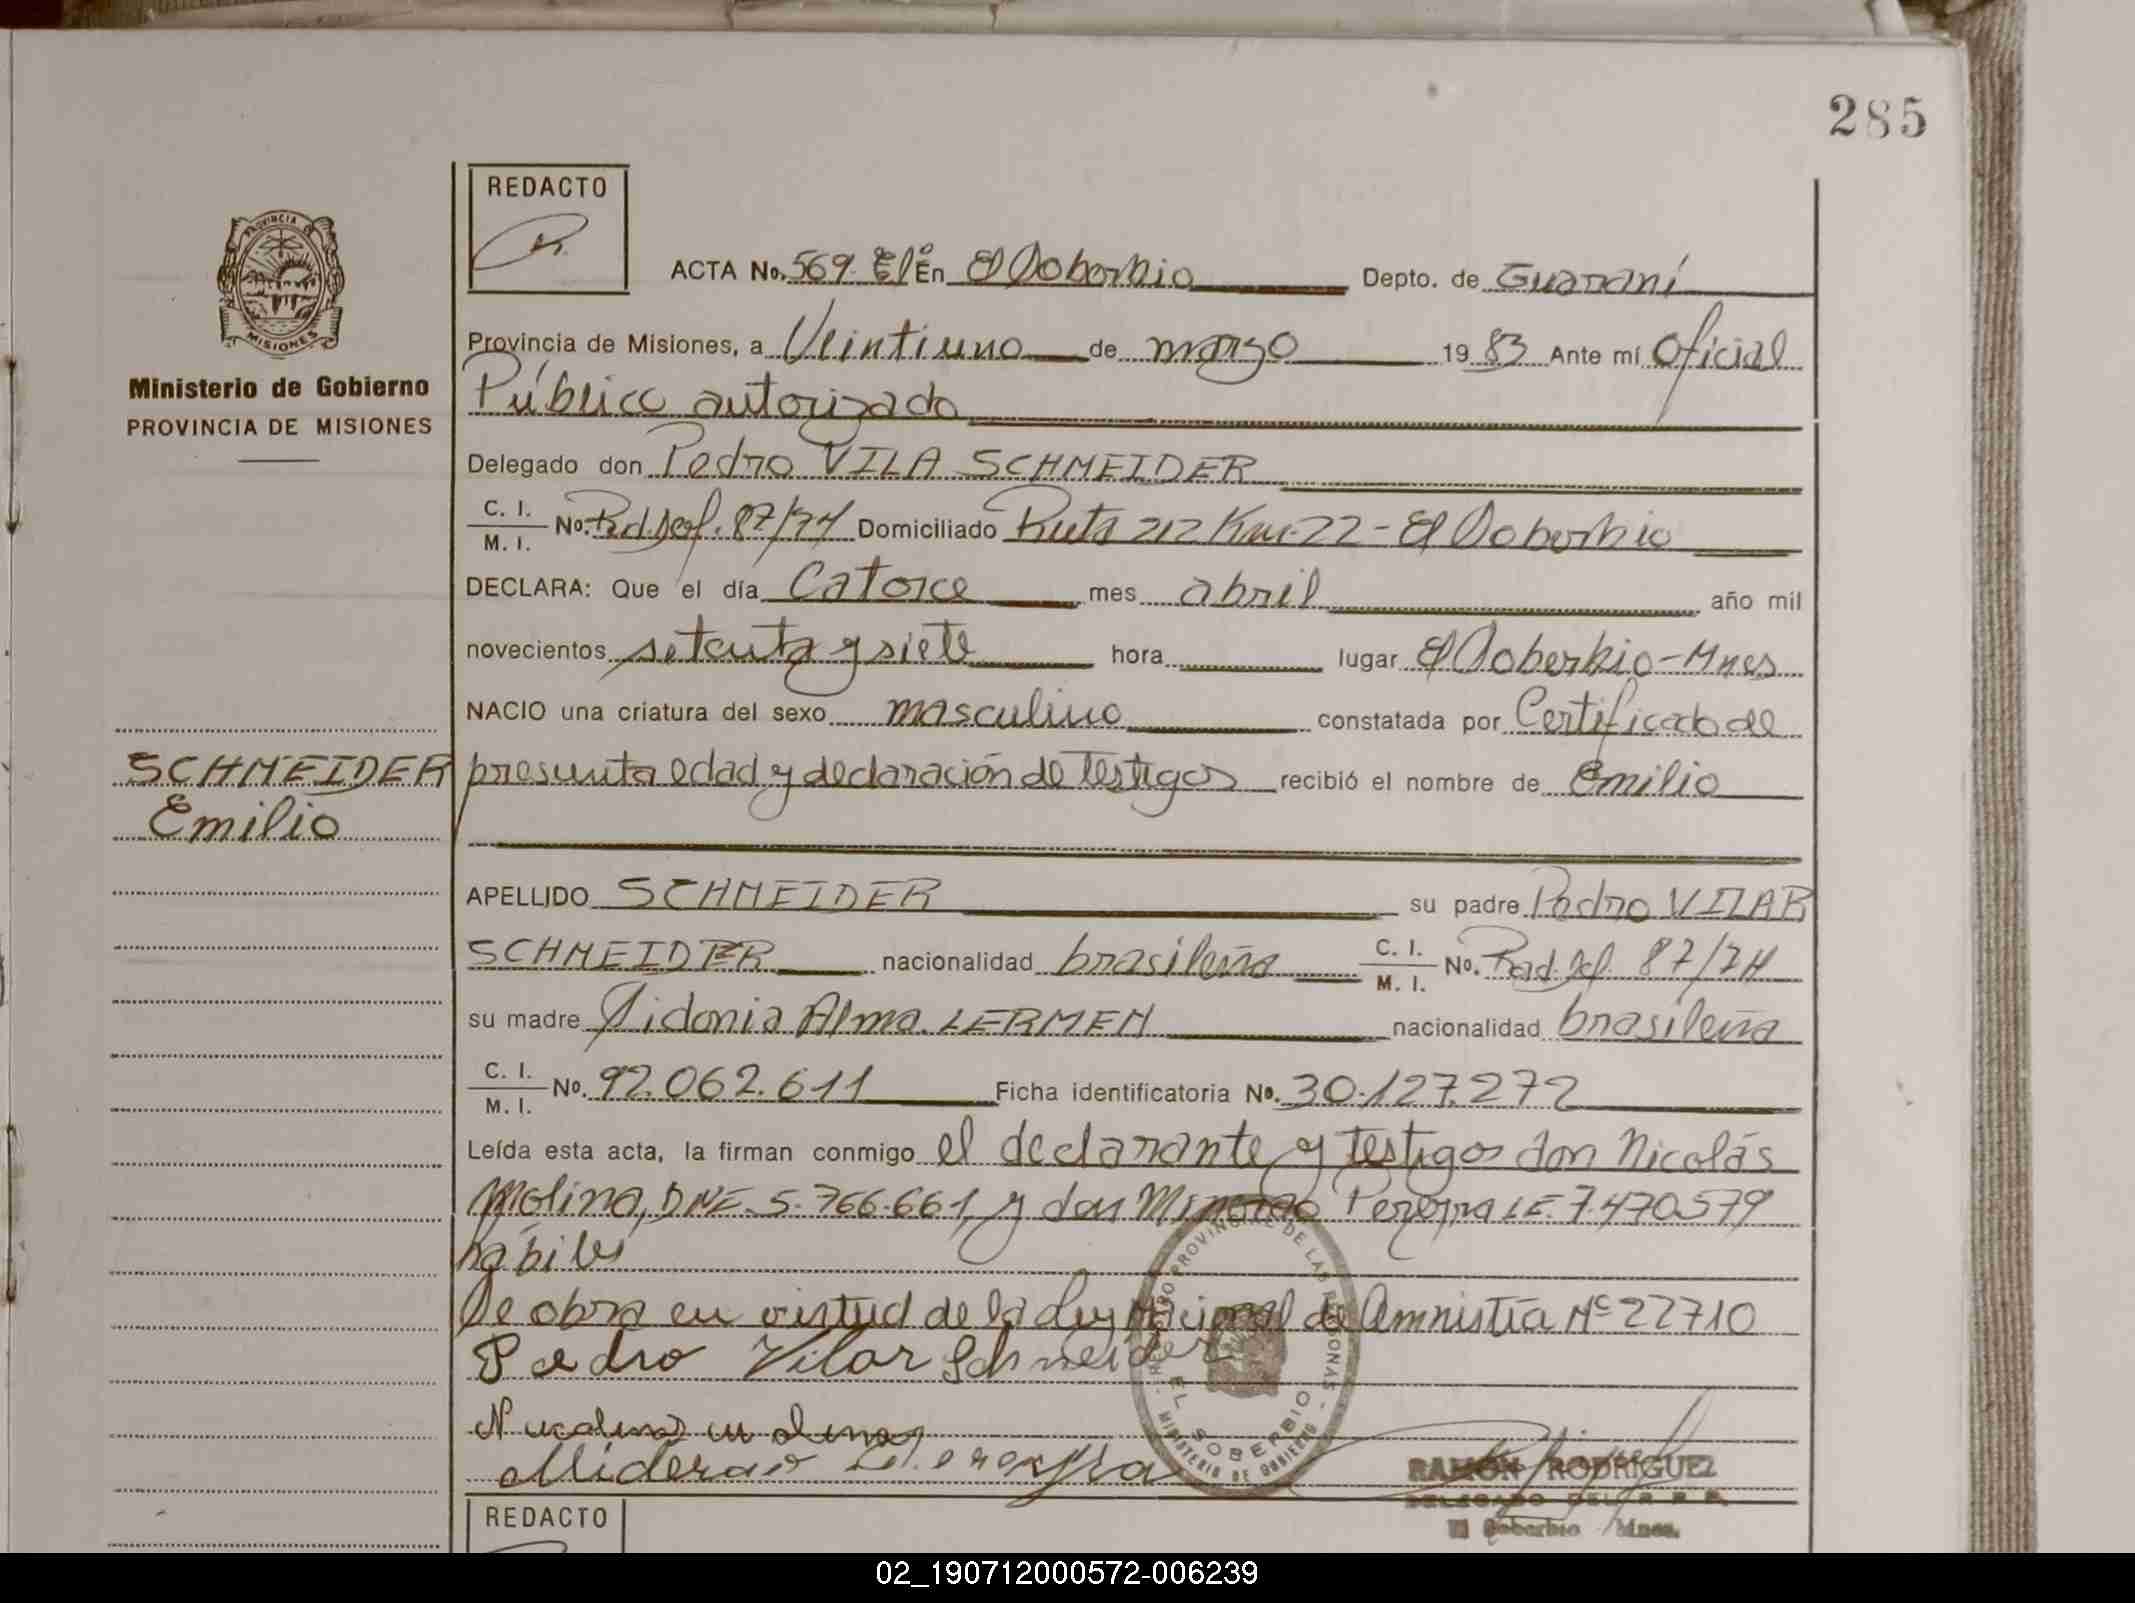 285
REDACTO
PROVINCIA
MISIONES
ACTA No. 569 En El Soberbio Depto. de Guaraní
Provincia de Misiones, a Veintiuno de marzo 1983 Ante mí Oficial
Público autorizado
Ministerio de Gobierno
PROVINCIA DE MISIONES
Delegado don Pedro VILA SCHNEIDER
C. I. M. I. No. Rad. Def. 87/74 Domiciliado Ruta 212 Km. 22 - El Soberbio
DECLARA: Que el día Catorce mes abril año mil
novecientos setenta y siete hora lugar El Soberbio - Mnes
NACIO una criatura del sexo masculino constatada por Certificado de
SCHNEIDER presunta edad y declaración de testigos recibió el nombre de Emilio
Emilio
APELLIDO SCHNEIDER su padre Pedro VILAR
SCHNEIDER nacionalidad brasileña C. I. M. I. No. Rad. Def. 87/74
su madre Sidonia Alma LERMEN nacionalidad brasileña
C. I. M. I. No. 92.062.611 Ficha identificatoria No. 30.127.272
Leída esta acta, la firman conmigo el declarante y testigos don Nicolás
Molina, DNE. 5.766.661, y don Pereyra LE. 7.470.579
hábiles
Se obra en virtud de la Ley Nacional de Amnistía Nº 22710
Pedro Vilar Schneider
REGISTRO PROVINCIAL DE LAS PERSONAS - EL SOBERBIO - MINISTERIO DE GOBIERNO
RAMÓN RODRIGUEZ
DELEGADO DEL R. P. P.
El Soberbio Mnes.
REDACTO
02_190712000572-006239